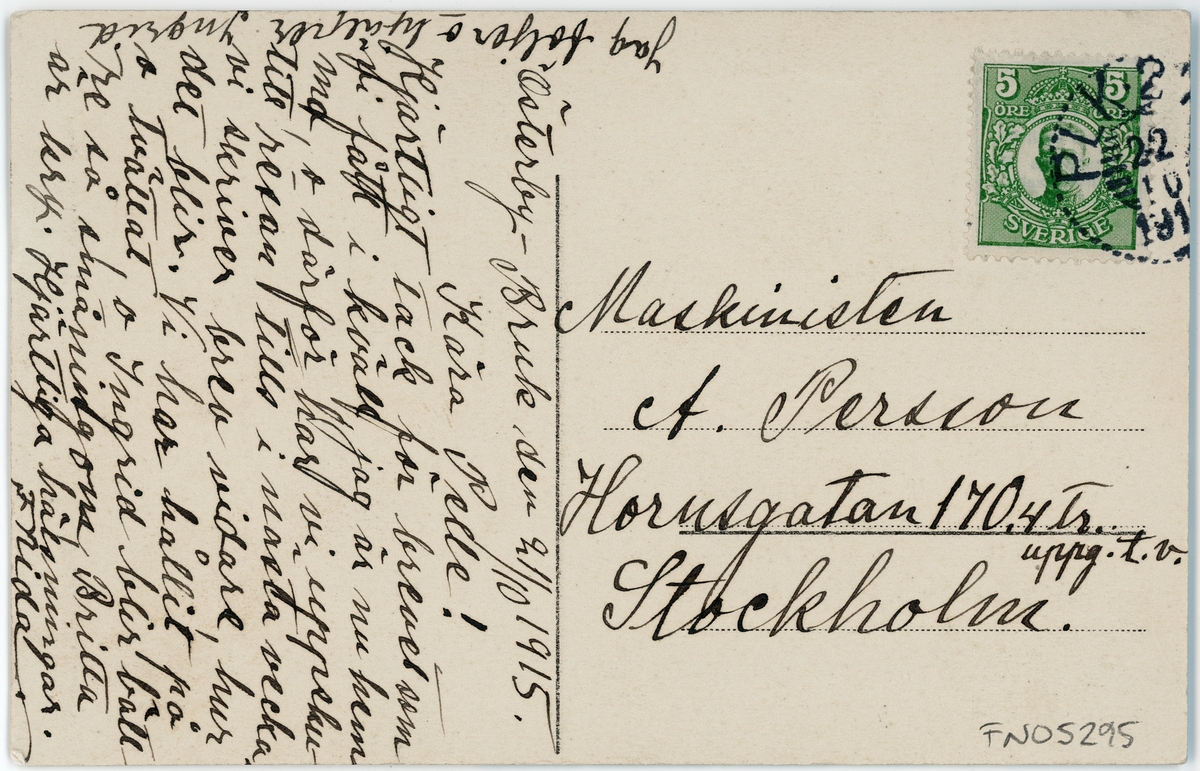 Österby-Bruk den 21/6 1915.
Kära Pelle!
Hjärtligt tack för brevet som
vi fått i kväll, jag är nu hem
ma, o därför har vi uppsku
tit resan tills i nästa vecka
vi skriver brev vidare, hur
det blir. Vi har hållit på
o tvättat o Ingrid blir bätt
re så småningom, Britta
är kry. Hjärtliga hälsningar.
Frida
Jag följer o hjälper Ingrid
5 5
ÖRE
SVERIGE
22
191
Maskinisten
A. Persson
Hornsgatan 170. 4 tr.
uppg. t. v.
Stockholm.
FN05295